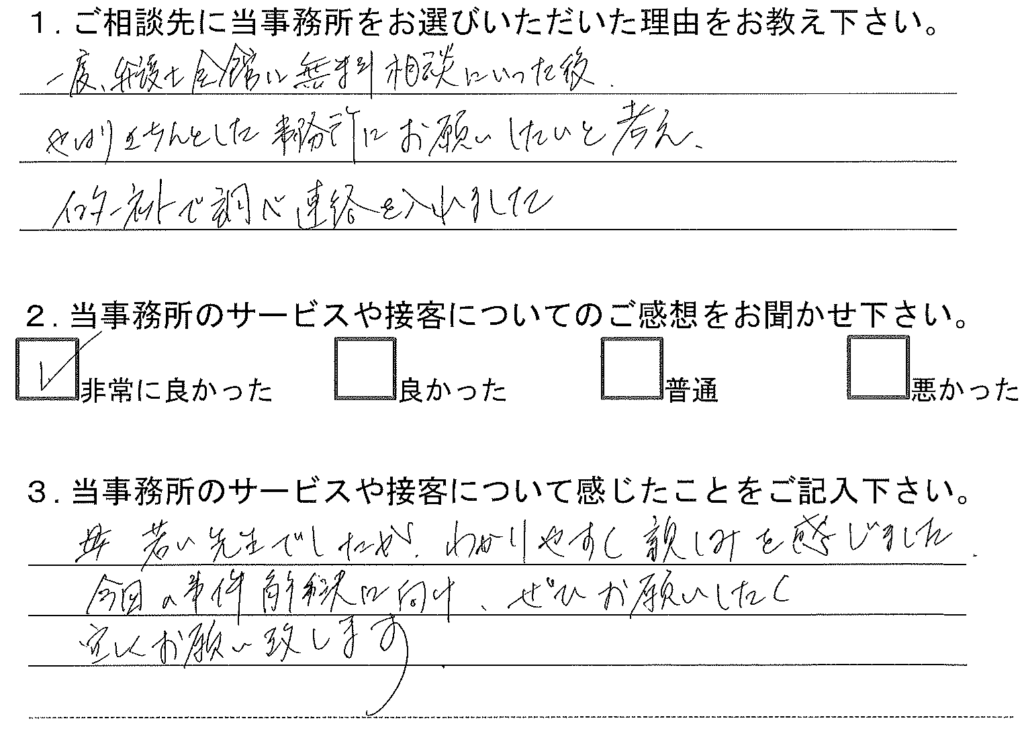 １．ご相談先に当事務所をお選びいただいた理由をお教え下さい。
一度、弁護士会館に無料相談にいった後、
やはりきちんとした事務所にお願いしたいと考え、
インターネットで調べ連絡を入れました
２．当事務所のサービスや接客についてのご感想をお聞かせ下さい。
非常に良かった 良かった 普通 悪かった
３．当事務所のサービスや接客について感じたことをご記入下さい。
若い先生でしたが、わかりやすく親しみを感じました、
今回の事件解決に向け、ぜひお願いしたく
宜しくお願い致します